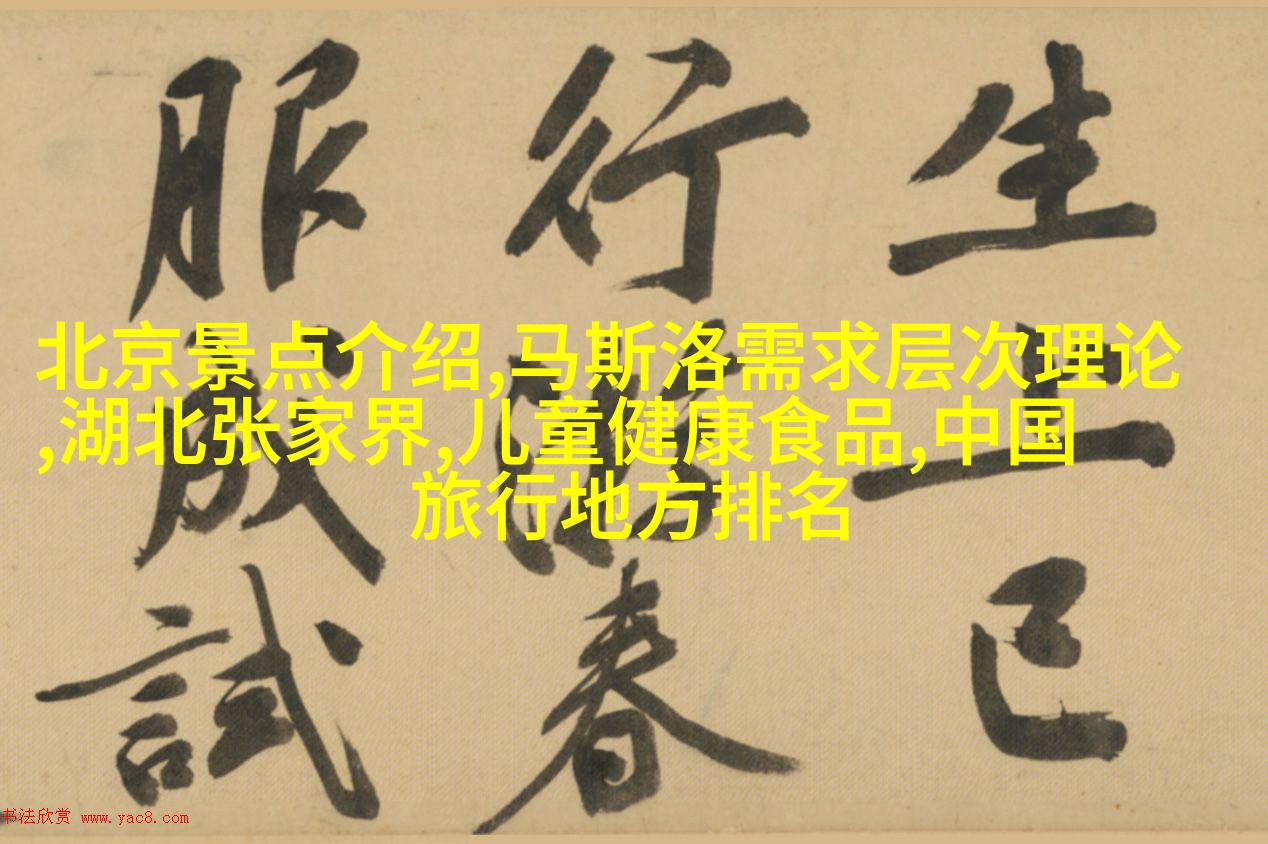 生上巳
行春
服成試
北京景点介绍,马斯洛需求层次理论
,湖北张家界,儿童健康食品,中国
旅行地方排名
书法欣赏 www.yac8.com